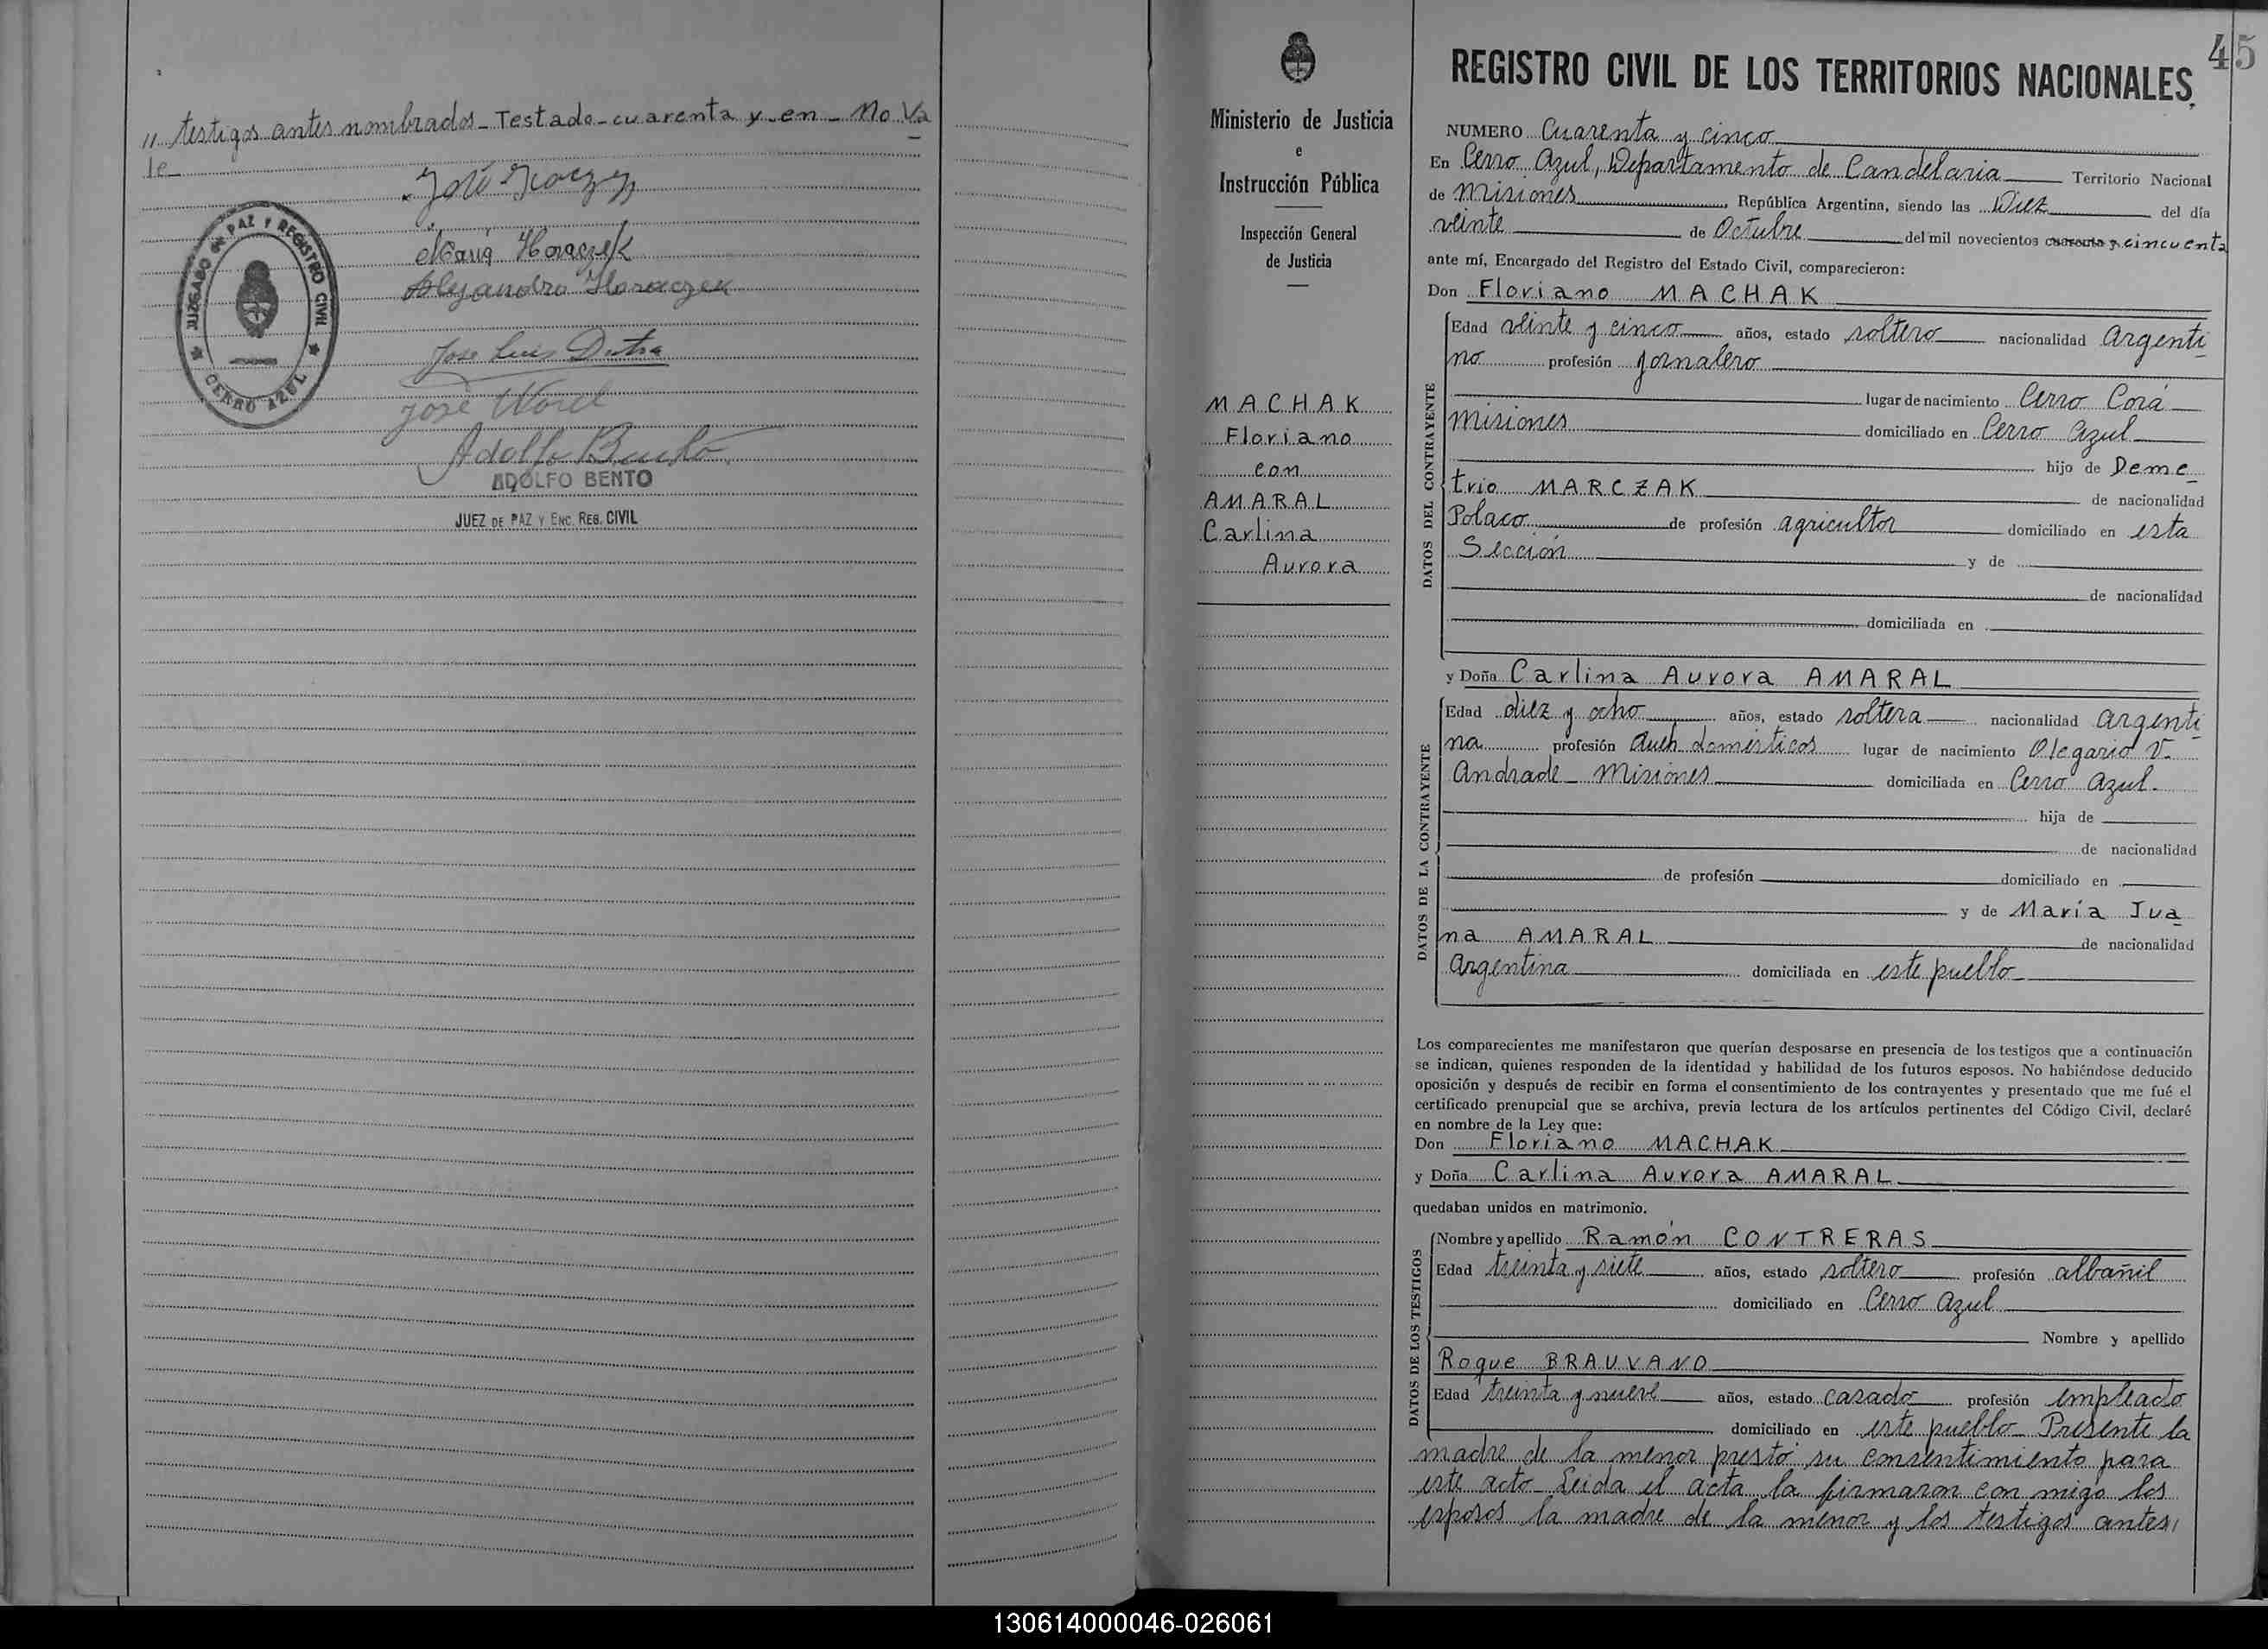 // testigos antes nombrados_ Testado_ cuarenta y_ en_ No Va
le_
José
María Horaczek
Alejandro Horaczek
Jose Luis Dutra
José Worel
Adolfo Bento
ADOLFO BENTO
JUEZ DE PAZ Y ENC. REG. CIVIL
JUZGADO DE PAZ Y REGISTRO CIVIL
CERRO AZUL
Ministerio de Justicia
e
Instrucción Pública
Inspección General
de Justicia
MACHAK
Floriano
con
AMARAL
Carlina
Aurora
45
REGISTRO CIVIL DE LOS TERRITORIOS NACIONALES
NUMERO Cuarenta y cinco
En Cerro Azul, Departamento de Candelaria Territorio Nacional
de Misiones, República Argentina, siendo las Diez del día
veinte de Octubre del mil novecientos cuarenta y cincuenta
ante mí, Encargado del Registro del Estado Civil, comparecieron:
Don Floriano MACHAK
DATOS DEL CONTRAYENTE
Edad veinte y cinco años, estado soltero nacionalidad Argenti
no profesión Jornalero
lugar de nacimiento Cerro Corá
Misiones domiciliado en Cerro Azul
hijo de Deme
trio MARCZAK de nacionalidad
Polaco de profesión agricultor domiciliado en esta
Sección y de
de nacionalidad
domiciliada en
y Doña Carlina Aurora AMARAL
DATOS DE LA CONTRAYENTE
Edad diez y ocho años, estado soltera nacionalidad Argenti
na profesión Queh. domésticos lugar de nacimiento Olegario V.
Andrade_ Misiones domiciliada en Cerro Azul.
hija de
de nacionalidad
de profesión domiciliado en
y de María Jua
na AMARAL de nacionalidad
Argentina domiciliada en este pueblo
Los comparecientes me manifestaron que querían desposarse en presencia de los testigos que a continuación
se indican, quienes responden de la identidad y habilidad de los futuros esposos. No habiéndose deducido
oposición y después de recibir en forma el consentimiento de los contrayentes y presentado que me fué el
certificado prenupcial que se archiva, previa lectura de los artículos pertinentes del Código Civil, declaré
en nombre de la Ley que:
Don Floriano MACHAK
y Doña Carlina Aurora AMARAL
quedaban unidos en matrimonio.
DATOS DE LOS TESTIGOS
Nombre y apellido Ramón CONTRERAS
Edad treinta y siete años, estado soltero profesión albañil
domiciliado en Cerro Azul
Nombre y apellido
Roque BRAUVANO
Edad treinta y nueve años, estado casado profesión empleado
domiciliado en este pueblo_ Presente la
madre de la menor prestó su consentimiento para
este acto_ Leida el acta la firmaron con migo los
esposos la madre de la menor y los testigos antes/
130614000046-026061